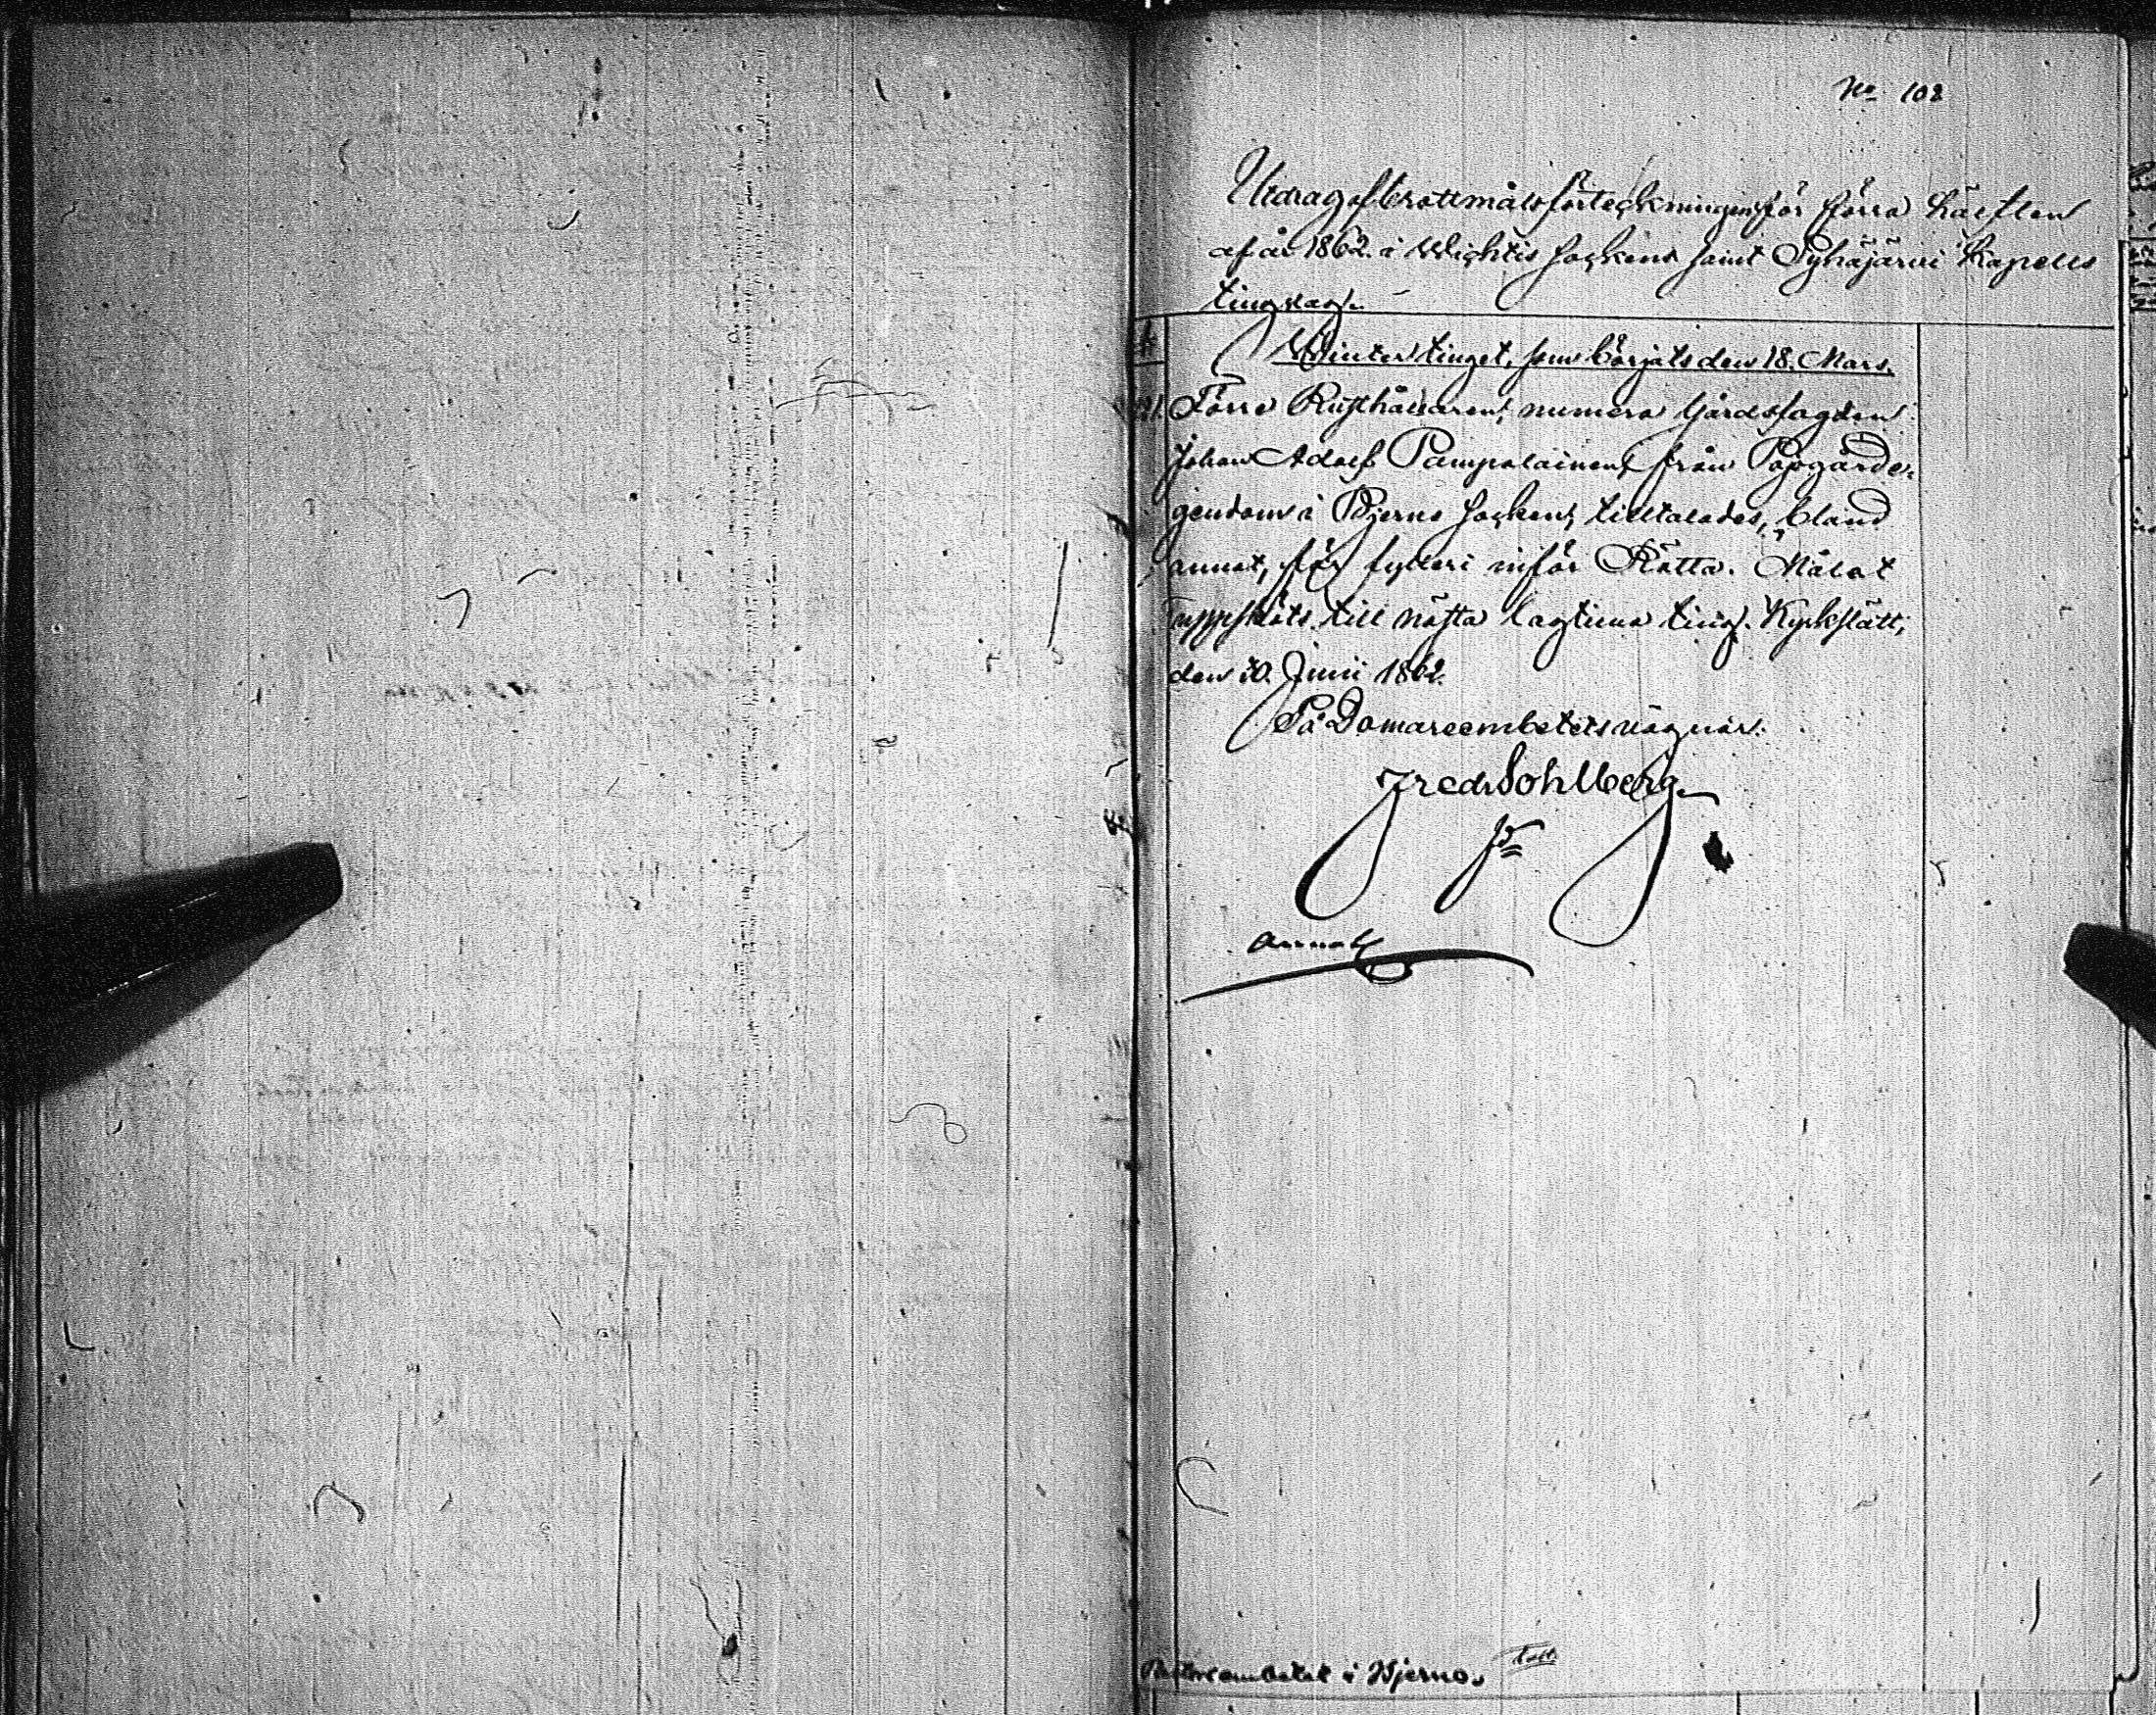 No 102
Utdrag af brottmålsförteckningen för förra hälften
af år 1862 i Wichtis sockens samt Pyhäjärvi Kapells
tingslag.
Wintertinget, som börjats den 18. Mars.
Förre Rusthållaren, numera Gårdsfogden
Johan Adolf Pampolainen från
i Bjerno socken, tilltalades, bland
annat, för fylleri inför Rätta. Målet
uppsköts till nästa lagtima ting. Kyrkslätt,
den 30. Junii 1862.
På Domareembetets vägnar:
Fredr Sohlberg
Annot
Pastorsembetet i Bjerno.